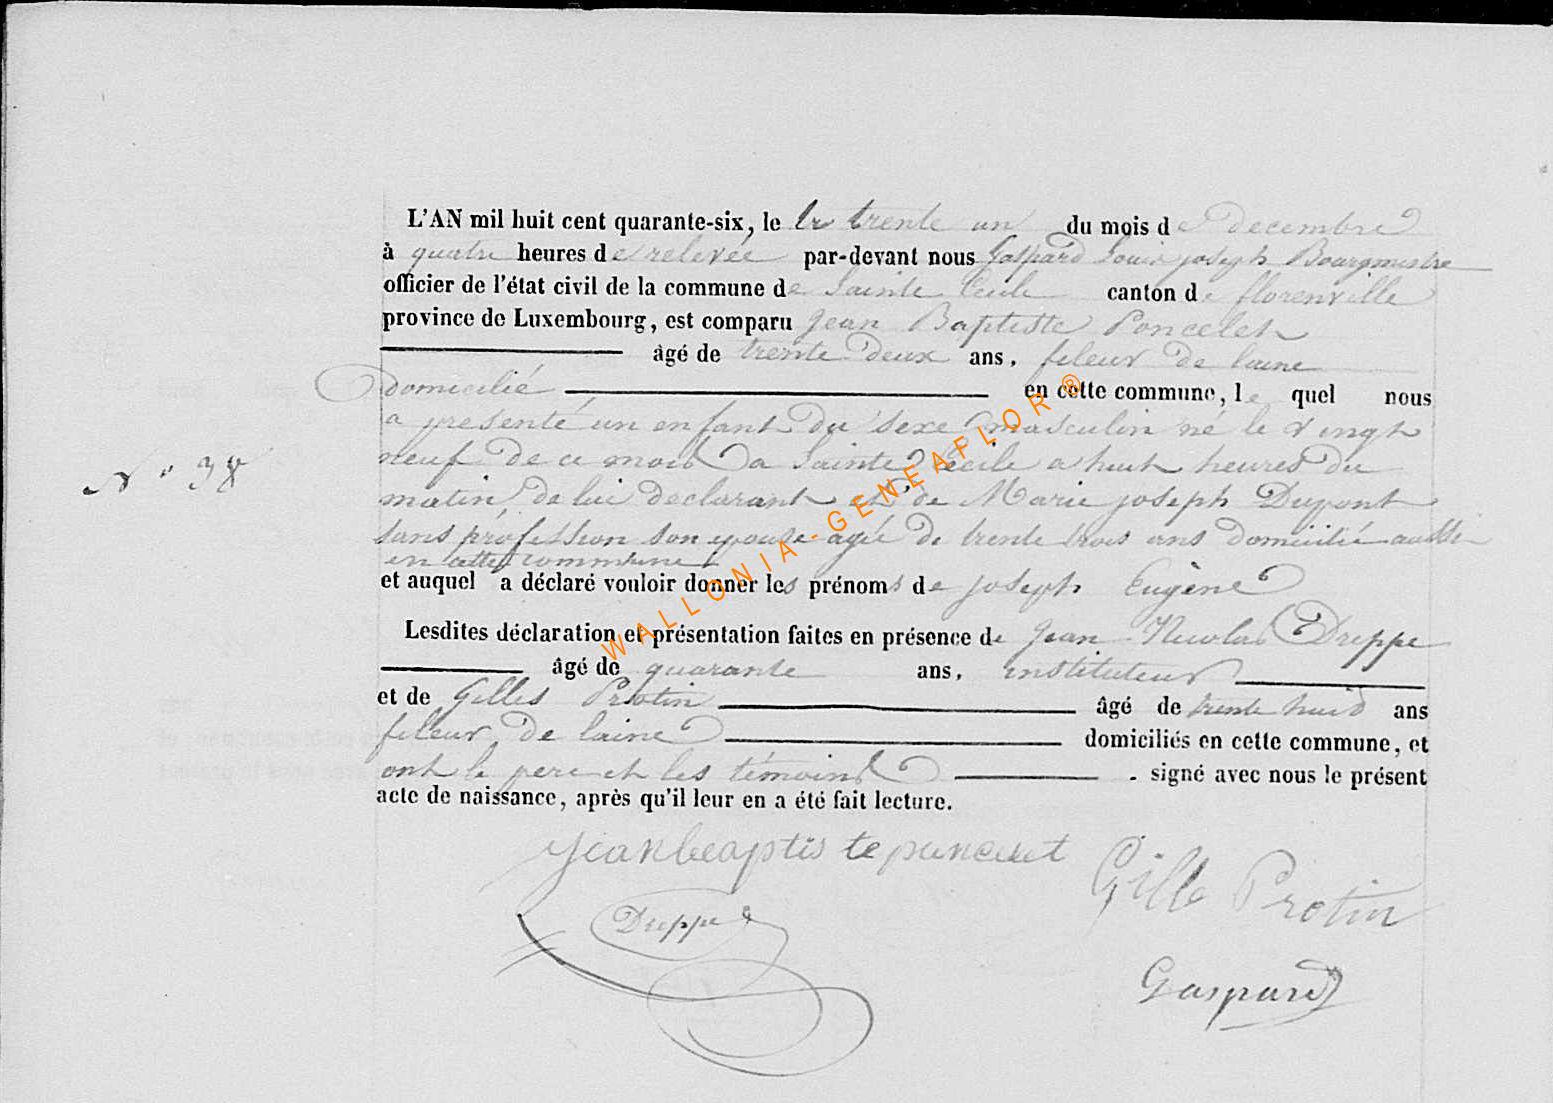 L'AN mil huit cent quarante-six, le le trente un du mois de decembre
à quatre heures de relevée par-devant nous Gaspard Louis joseph Bourgmestre
officier de l'état civil de la commune de Sainte Cecile canton de florenville
province de Luxembourg, est comparu Jean Baptiste Poncelet
âgé de trente deux ans, fileur de laine
domicilié en cette commune, le quel nous
a presenté un enfant du sexe masculin né le vingt
neuf de ce mois a Sainte Cecile a huit heures du
N° 38
matin, de lui declarant et de Marie joseph Dupont
sans profession son epouse agée de trente trois ans domiciliée aussi
en cette commune
et auquel a déclaré vouloir donner les prénoms de joseph Eugène
Lesdites déclaration et présentation faites en présence de Jean Nicolas Dreppe
âgé de quarante ans, instituteur
et de Gilles Protin âgé de trente huit ans
fileur de laine domiciliés en cette commune, et
ont le pere et les témoins signé avec nous le présent
acte de naissance, après qu'il leur en a été fait lecture.
Jeanbeaptis te ponceret
Gille Protin
Dreppe
Gaspard
WALLONIA-GENEAFLOR®